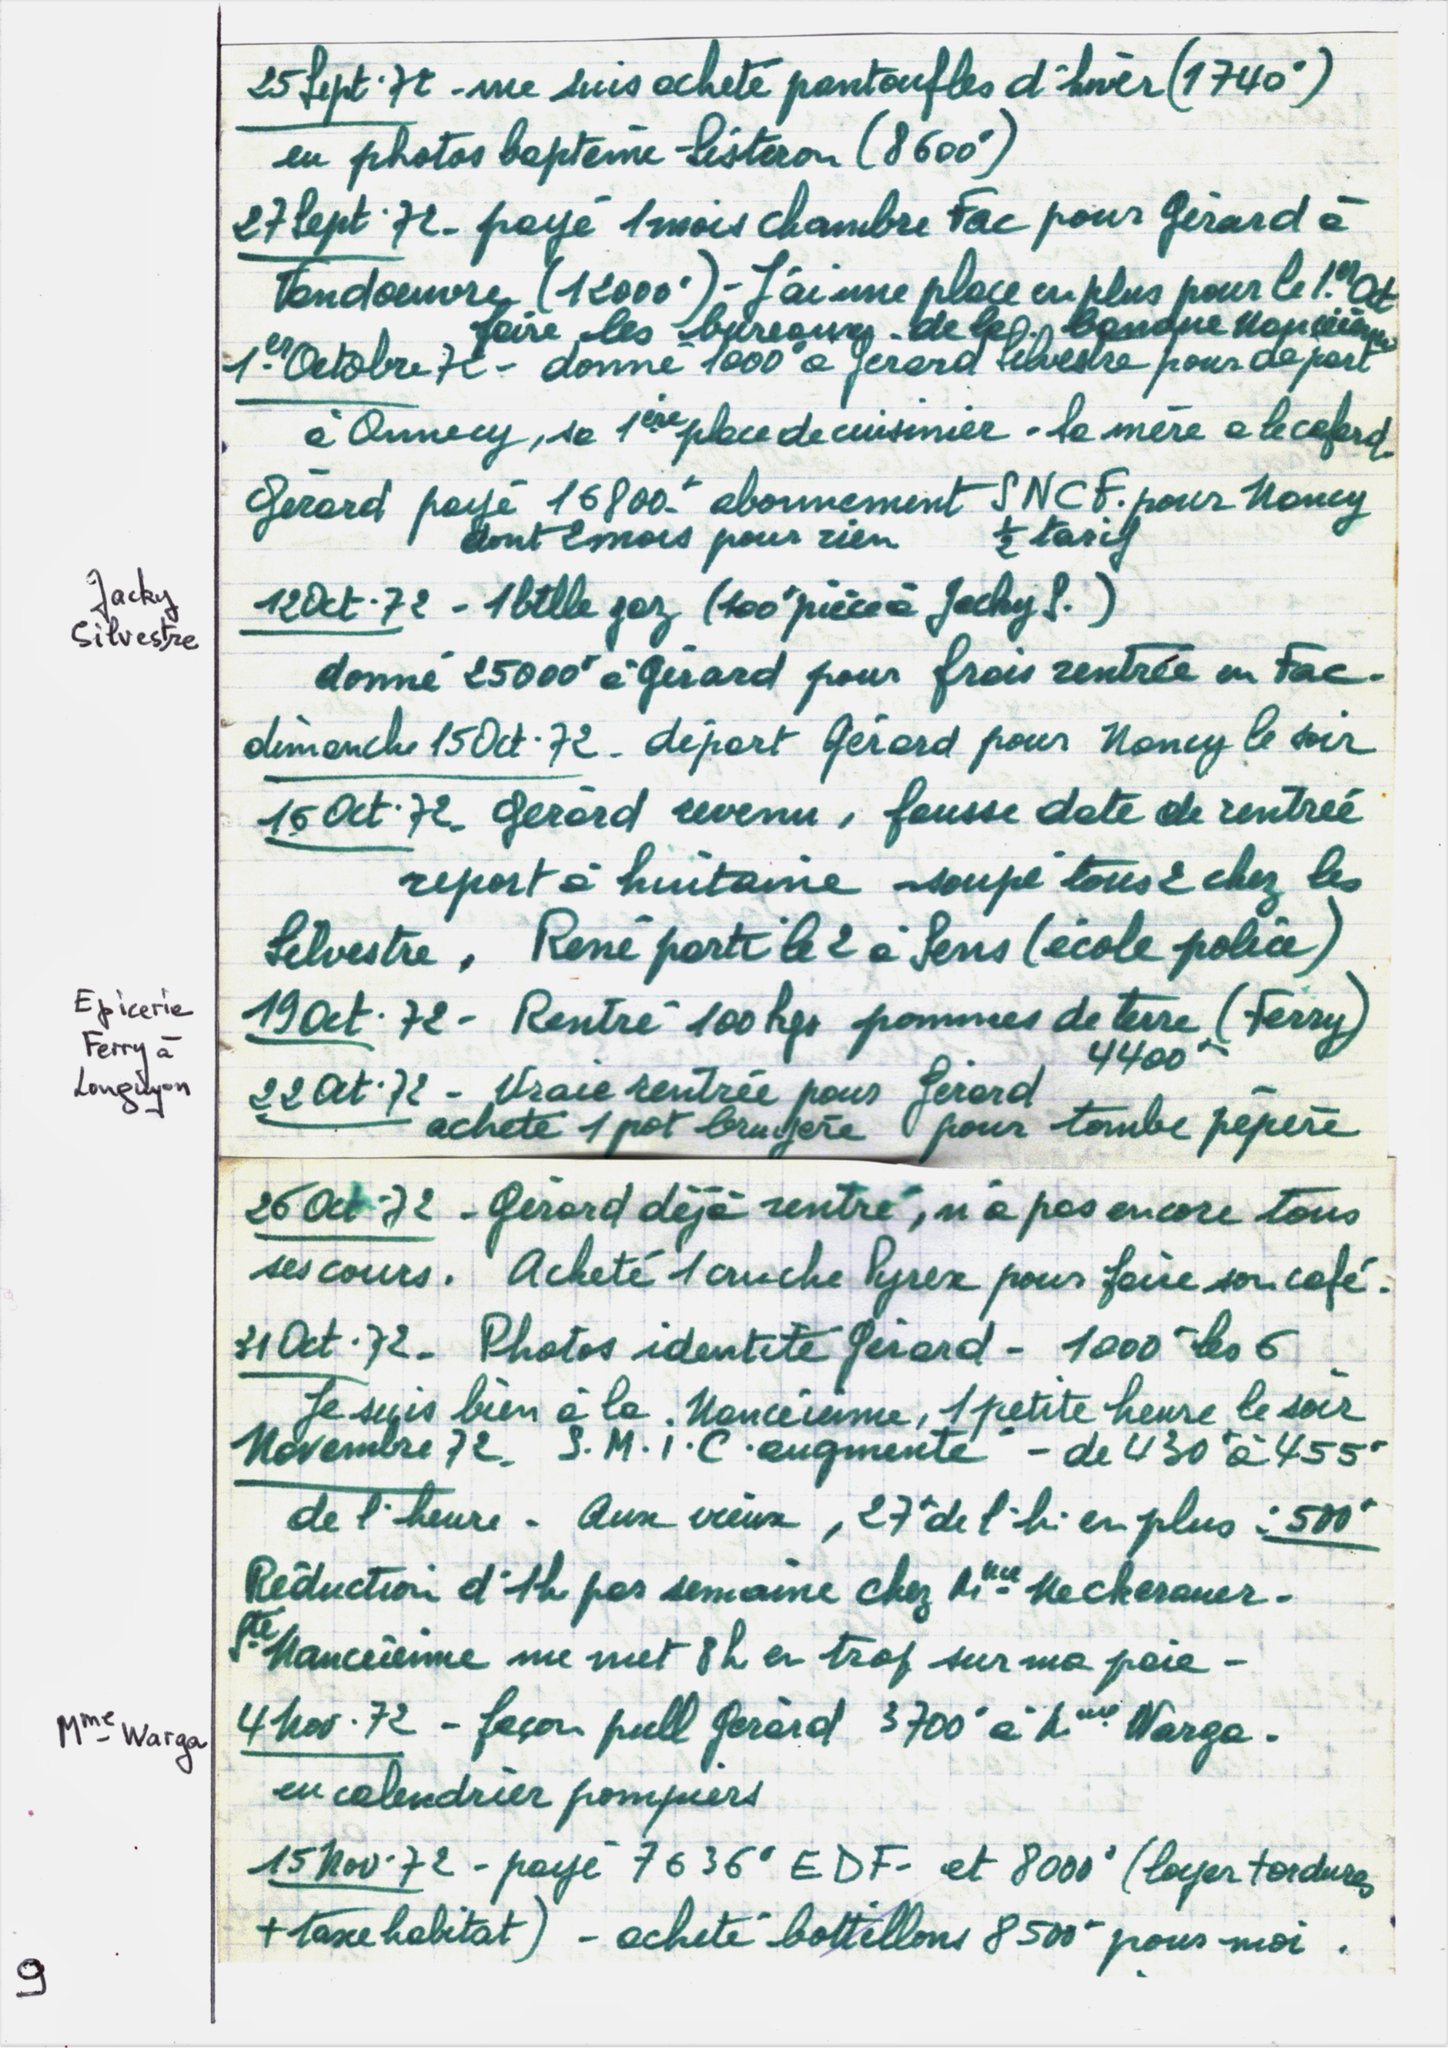 25 Sept. 72 - me suis acheté pantoufles d'hiver (1740°)
en photos baptême Sisteron (8600°)
27 Sept. 72 - payé 1 mois chambre Fac pour Gérard à
Vandoeuvre (12000°) - J'ai une place en plus pour le 1.er Oct
faire les bureaux de la banque Nancéienne
1.er Octobre 72 - donné 1000° à Gérard Silvestre pour départ
à Annecy, sa 1ère place de cuisinier - la mère a le cafard.
Gérard payé 16800° abonnement SNCF. pour Nancy
dont 2 mois pour rien ½ tarif
Jacky
Silvestre
12 Oct. 72 - 1 btlle gaz (100° pièce à Jacky S.)
donné 25000° à Gérard pour frais rentrée en Fac.
dimanche 15 Oct. 72 - départ Gérard pour Nancy le soir
16 Oct. 72 - Gérard revenu, fausse date de rentrée
report à huitaine - soupé tous 2 chez les
Silvestre, René parti le 2 à Sens (école police)
Epicerie
Ferry à
Longuyon
19 Oct. 72 - Rentré 100 kgs pommes de terre (Ferry)
4400°
22 Oct. 72 - Vraie rentrée pour Gérard
acheté 1 pot bruyère pour tombe pépère
26 Oct. 72 - Gérard déjà rentré, n'a pas encore tous
ses cours. Acheté 1 cruche Pyrex pour faire son café.
31 Oct. 72 - Photos identité Gérard - 1000° les 6
Je suis bien à la Nancéienne, 1 petite heure le soir
Novembre 72 - S.M.I.C. augmenté - de 430° à 455°
de l'heure - Aux vieux, 27° de l'h. en plus : 500°
Réduction d'1h par semaine chez Mme
Sté Nancéienne me met 8h en trop sur ma paie -
Mme Warga
4 Nov. 72 - façon pull Gérard 3700° à Mme Warga.
en calendrier pompiers
15 Nov. 72 - payé 7636° EDF - et 8000° (loyer + ordures
+ taxe habitat) - acheté bottillons 8500° pour moi.
9